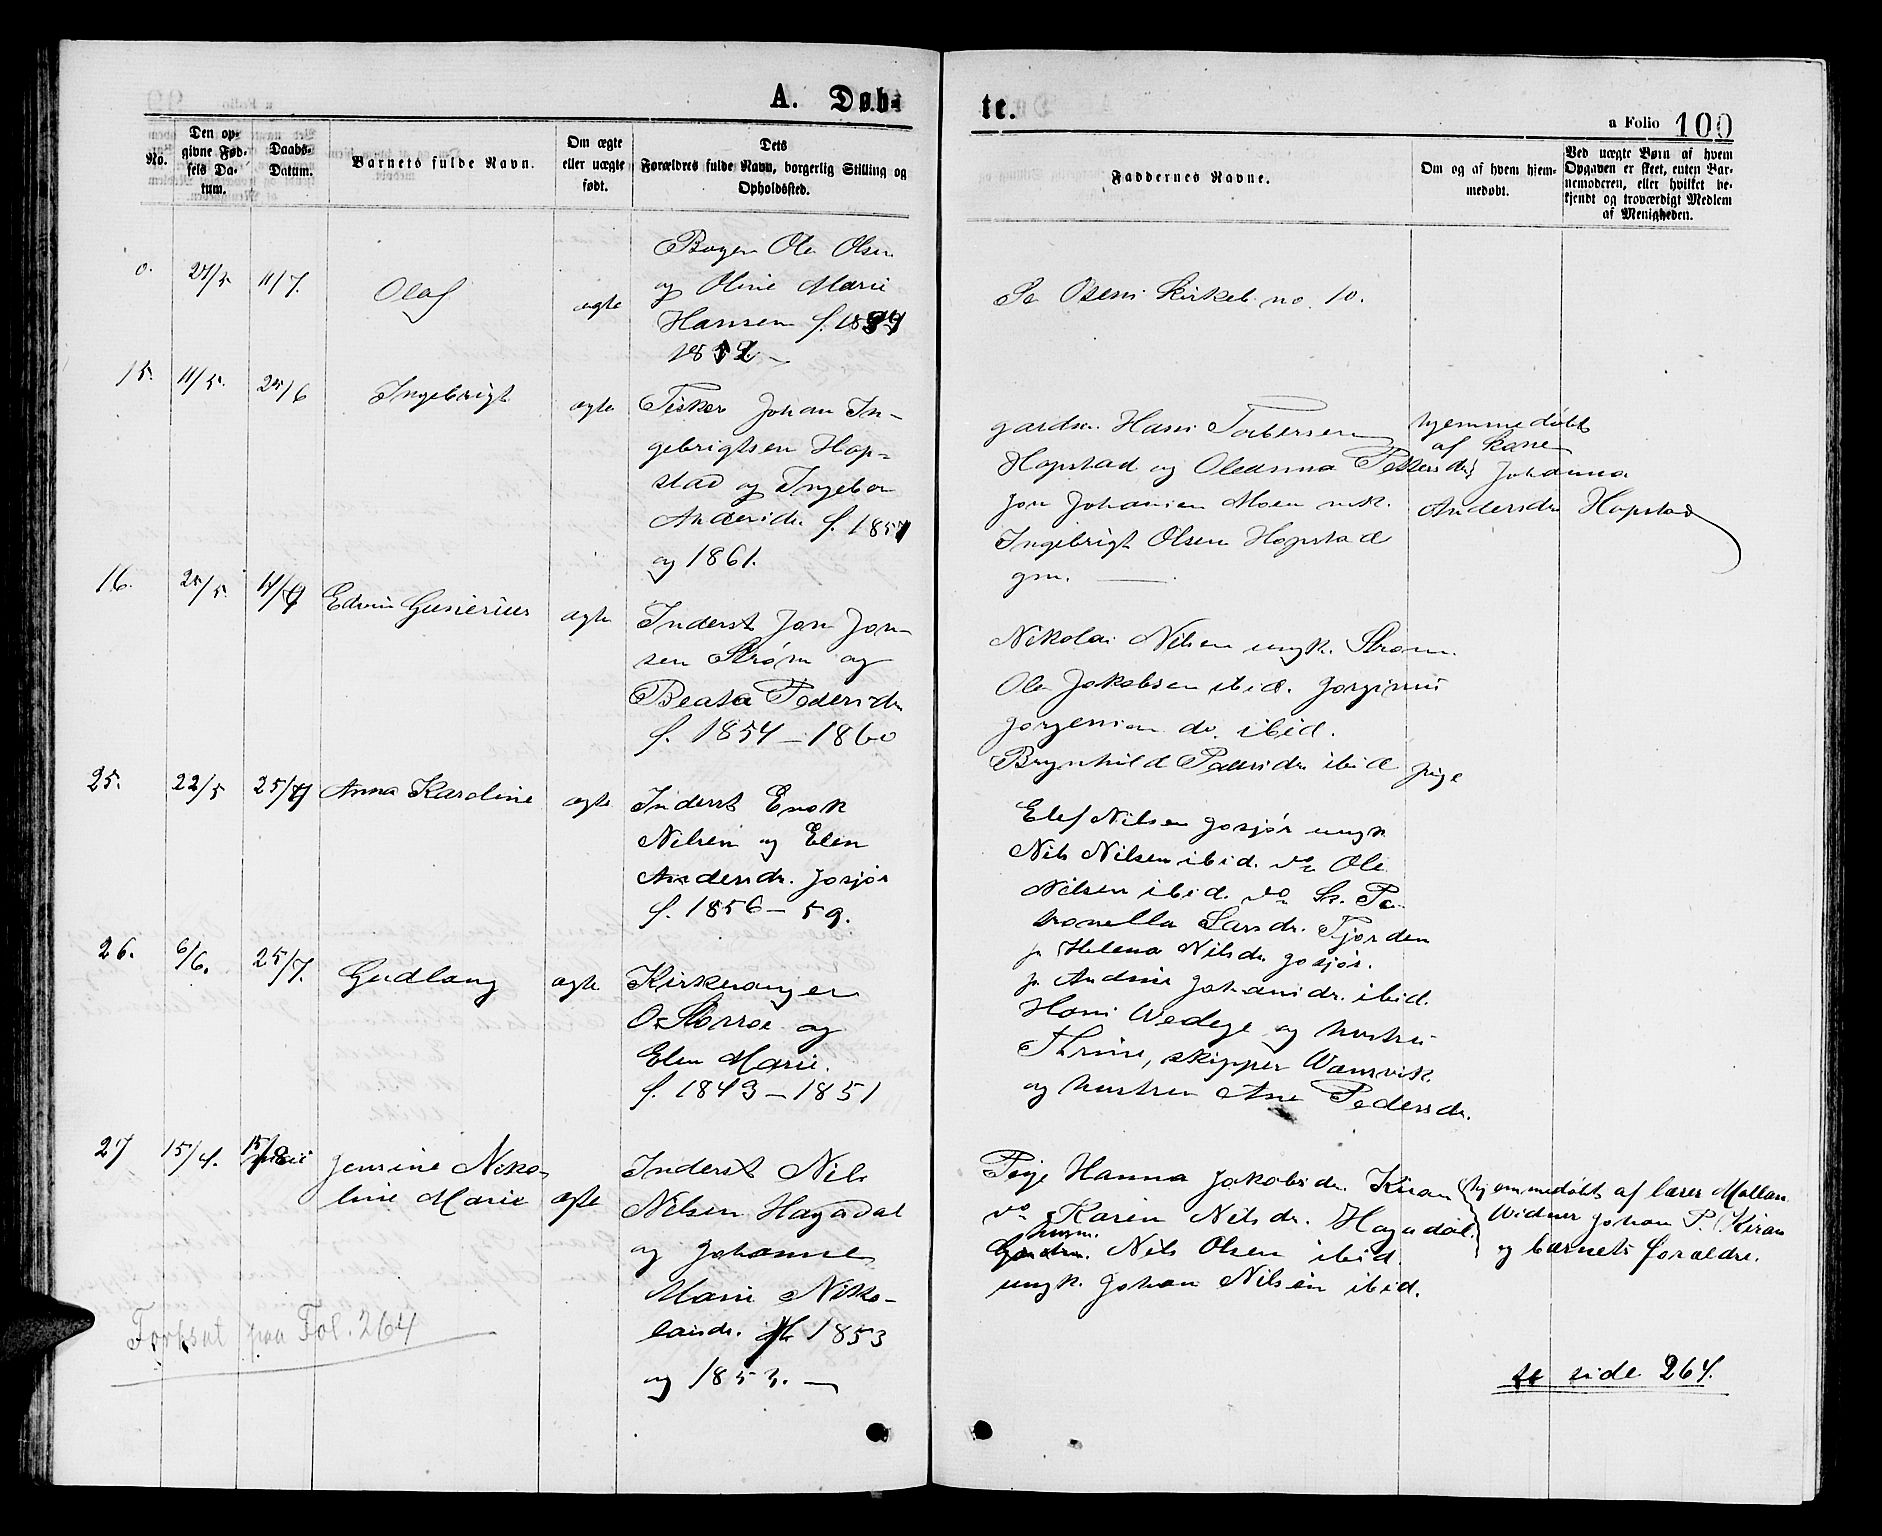 A. Døb-
te.
a Folio 100
No.
Den op-
givne Fød-
sels Da-
tum.
Daabs-
Datum.
Barnets fulde Navn.
Om ægte
eller uægte
født.
Dets
Forældres fulde Navn, borgerlig Stilling og
Opholdssted.
Faddernes Navne.
Om og af hvem hjem-
medøbt.
Ved uægte Børn af hvem
Opgaven er skeet, enten Bar-
nemoderen, eller hvilket be-
kjendt og troværdigt Medlem
af Menigheden.
0. 27/5 11/7. Olaf ægte
Ole Olsen
og Oline Marie
Hansen f.
Se Osens Kirkeb. no. 10.
15. 11/5. 25/6 Ingebrigt ægte
Fisker Johan In-
gebrigtsen Hop-
stad og Ingebor
Andersdr. f. 1857
og 1861.
gardm. Hans Torbersen
Hopstad og Oleanna Pettersdr
Jon Johansen Moen
Ingebrigt Olsen Hopstad
gm.
hjemmedøbt
af kone
Johanna
Andersdr Hopstad
16. 25/5. Edvin Gunerius ægte
Inderst Jon Jon-
sen Strøm og
Beata Pedersdr
f. 1854 – 1860
Nikolai Nilsen ungk. Strøm.
Ole Jakobsen ibid. Jørginus
Jørgensen do. ibid.
Brynhild Pedersdr ibid pige
25. 22/5 25/7 Anna Karoline ægte
Inderst Enok
Nilsen og Elen
Andersdr. Josjør
f. 1856 – 59.
Elef Nilsen Josjør ungk
Nils Nilsen ibid. do Ole
Nilsen ibid. do Pe-
tronella Larsdr. Fjorden
p. Helena Nilsdr Josjør.
p. Andrine Johansdr. ibid.
26. 6/6. 25/7. Gudlaug ægte
Kirkesanger
O. Størroe og
Elen Marie.
f. 1843 – 1851
Hans Wedege og hustru
Thrine, skipper Wansvik
og hustru Ane Pedersdr.
27 15/4. 15/8 Jensine Niko-
line Marie ægte
Inderst Nils
Nilsen Hagadal
og Johanne
Marie Niko-
laisdr. 1853
og 1853. –
Pige Hanna Jakobsdr. Kiran
do Karen Nilsdr. Hagadal.
Nils Olsen ibid.
ungk. Johan Nilsen ibid.
hjemmedøbt af lærer Mollan
Widner Johan P. Kiran
og barnets forældre.
Fortsat paa Fol. 264
se side 264.